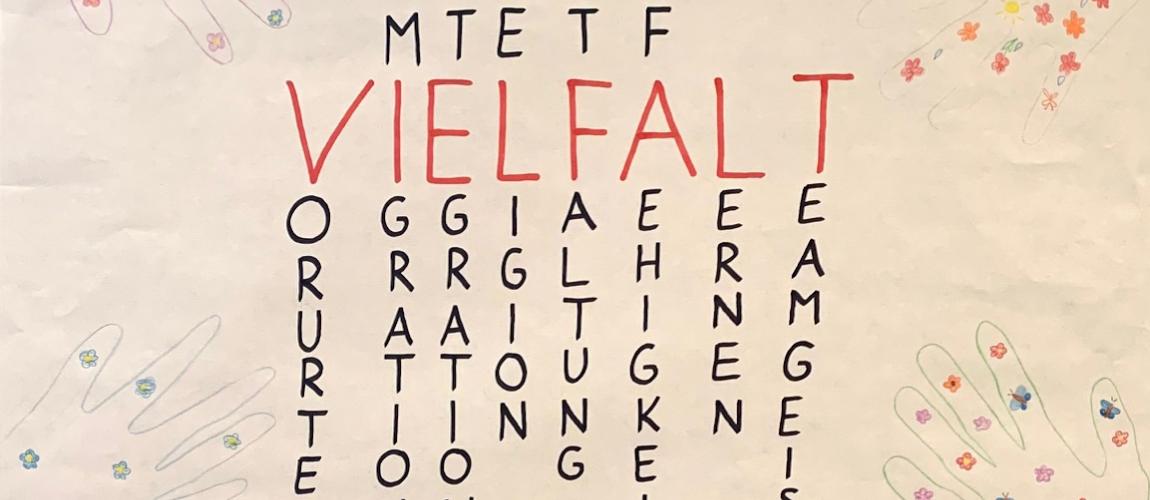 M T E T F
VIELFALT
O G G I A E E E
R R R G L H R A
U A A I T I N M
R T T O U G E G
T I I N N K N E
E O O G E I